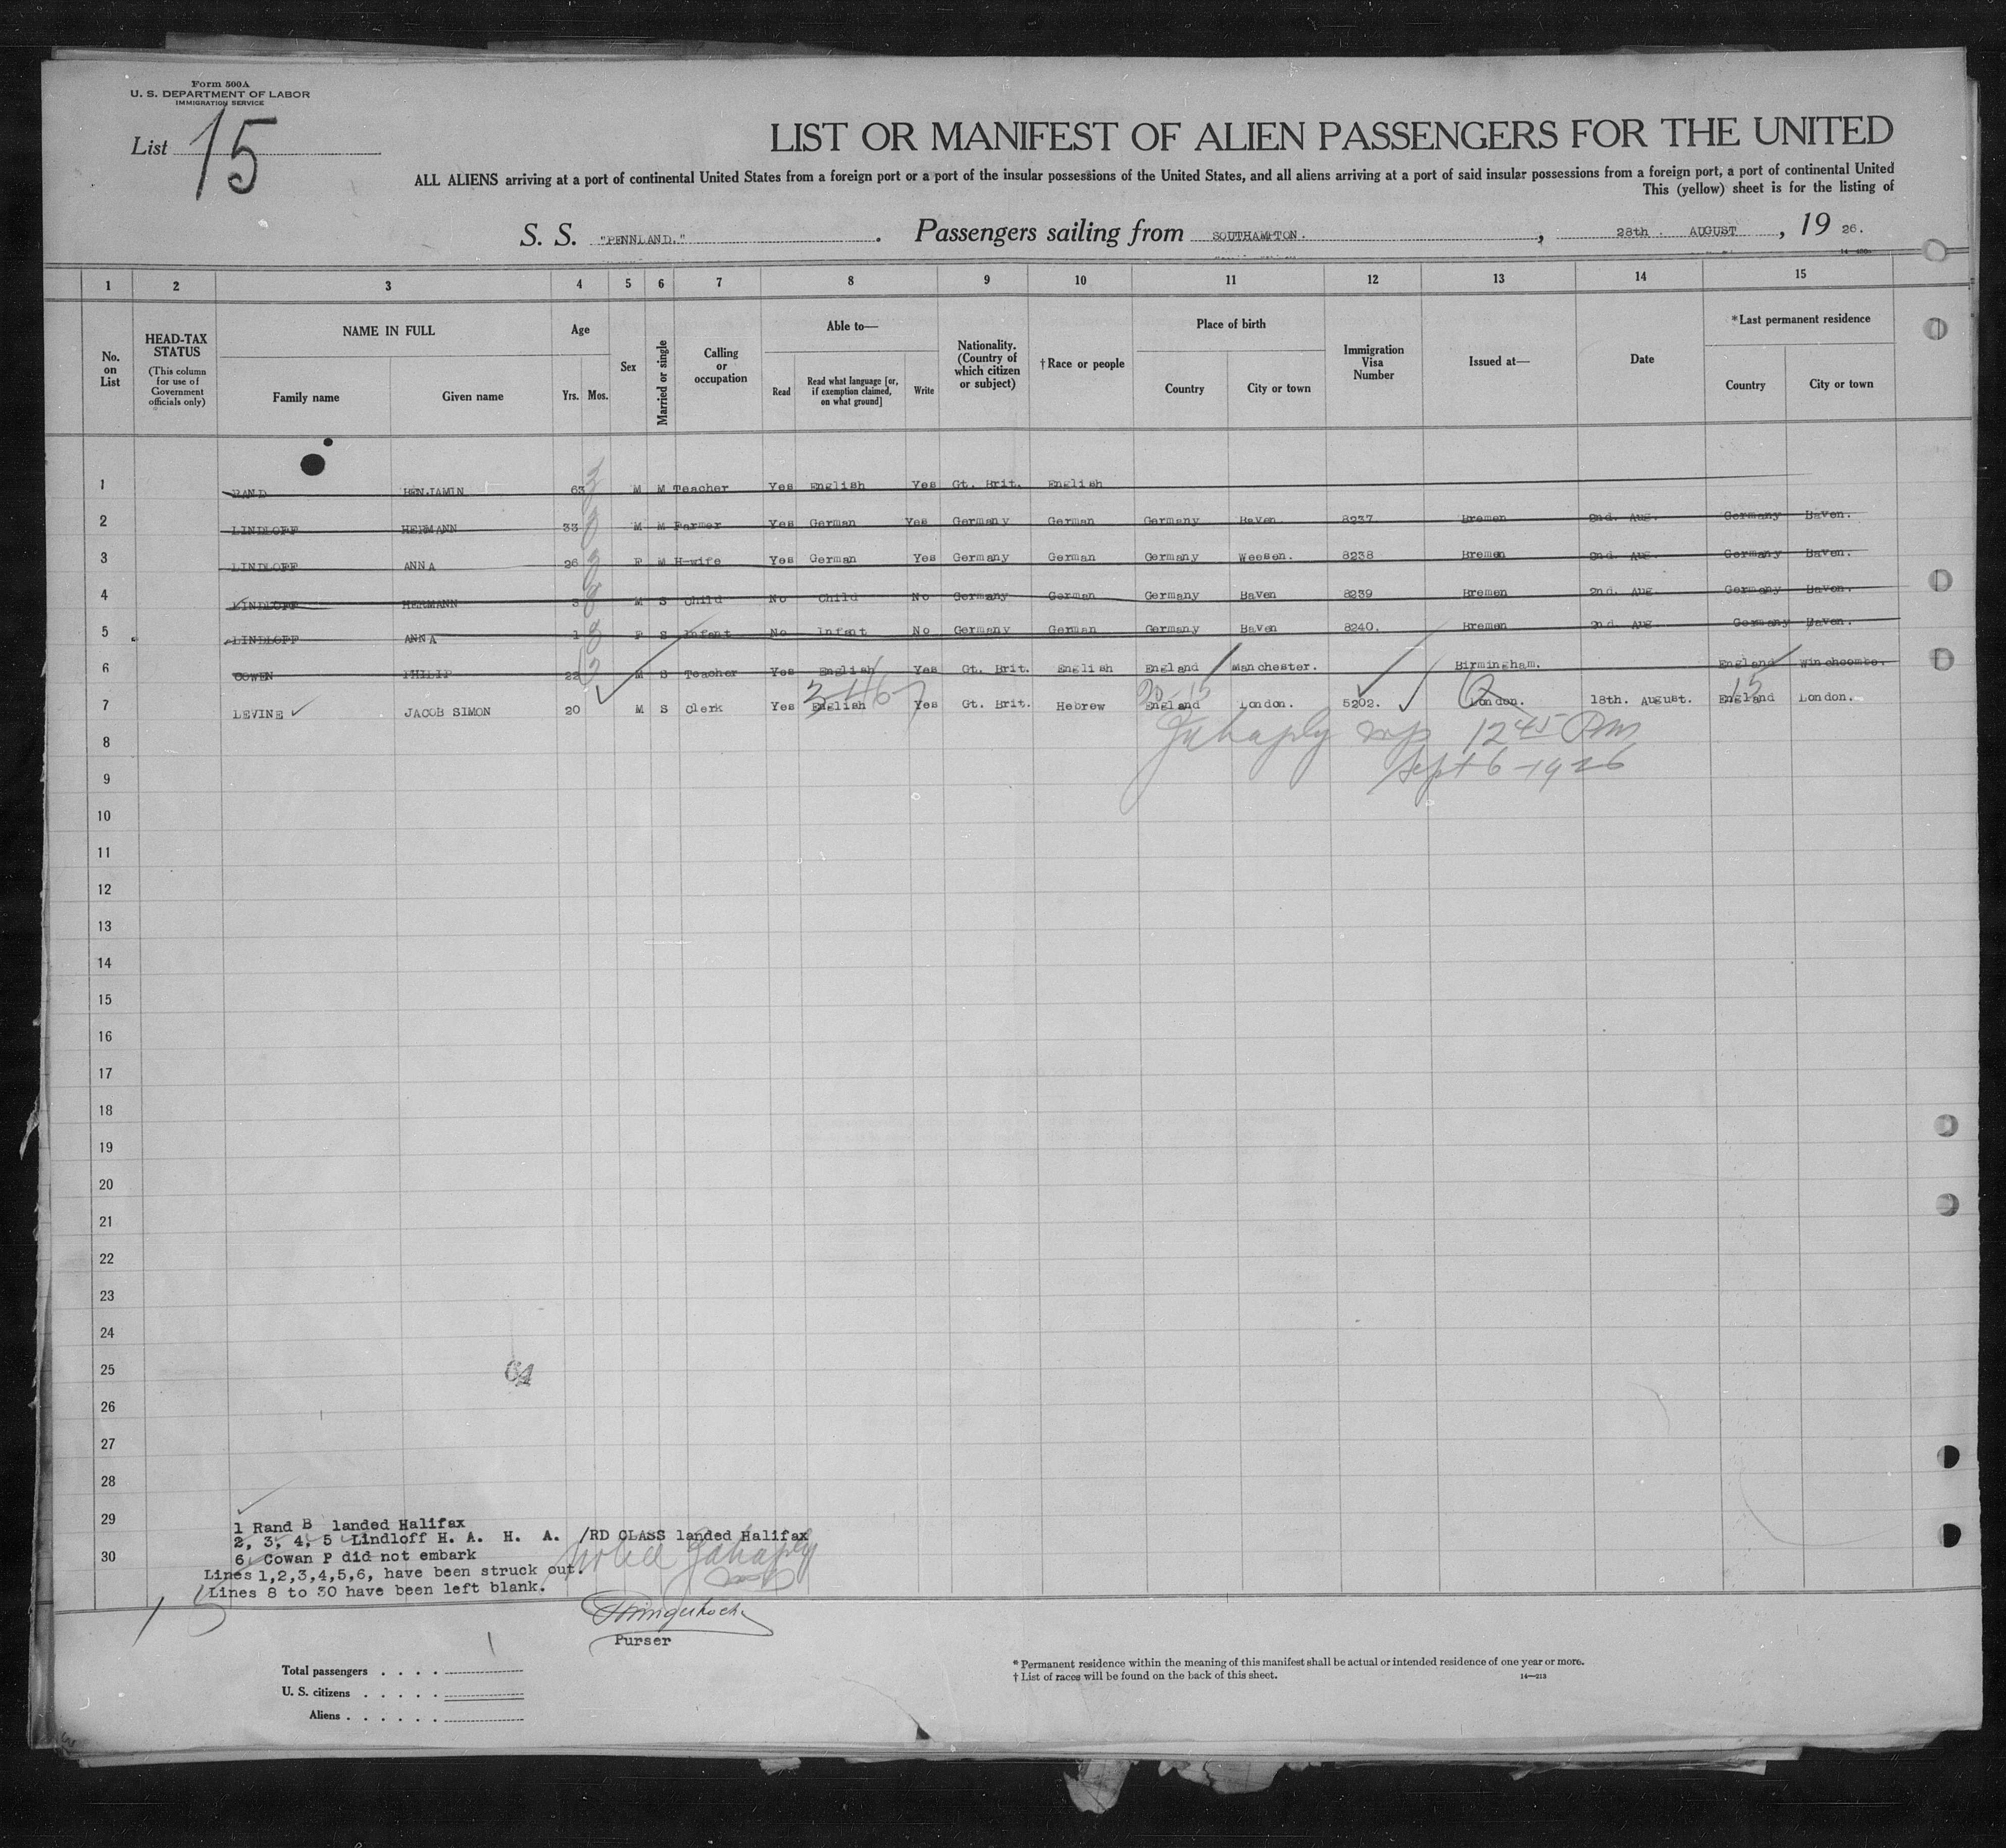 Form 500A
U. S. DEPARTMENT OF LABOR
IMMIGRATION SERVICE
List 15
LIST OR MANIFEST OF ALIEN PASSENGERS FOR THE UNITED
ALL ALIENS arriving at a port of continental United States from a foreign port or a port of the insular possessions of the United States, and all aliens arriving at a port of said insular possessions from a foreign port, a port of continental United
This (yellow) sheet is for the listing of
S. S. "PENNLAND." . Passengers sailing from SOUTHAMPTON. , 28th . AUGUST , 19 26.
1 2 3 4 5 6 7 8 9 10 11 12 13 14 15
No. on List
HEAD-TAX STATUS
(This column for use of Government officials only)
NAME IN FULL
Family name Given name
Age
Yrs. Mos.
Sex
Married or single
Calling or occupation
Able to—
Read
Read what language [or, if exemption claimed, on what ground]
Write
Nationality. (Country of which citizen or subject)
†Race or people
Place of birth
Country City or town
Immigration Visa Number
Issued at—
Date
*Last permanent residence
Country City or town
1 RAND BENJAMIN 63 M M Teacher Yes English Yes Gt. Brit. English
2 LINDLOFF HERMANN 33 M M Farmer Yes German Yes Germany German Germany Haven 8237 Bremen 2nd. Aug. Germany Haven.
3 LINDLOFF ANNA 26 F M H-wife Yes German Yes Germany German Germany Weesen. 8238 Bremen 2nd. Aug. Germany Haven.
4 LINDLOFF HERMANN 3 M S Child No Child No Germany German Germany Haven 8239 Bremen 2nd. Aug. Germany Haven.
5 LINDLOFF ANNA 1 F S Infant No Infant No Germany German Germany Haven 8240. Bremen 2nd. Aug Germany Haven.
6 COWEN PHILIP 22 M S Teacher Yes English Yes Gt. Brit. English England Manchester. Birmingham. England Winchcombe.
7 LEVINE JACOB SIMON 20 M S Clerk Yes English Yes Gt. Brit. Hebrew England London. 5202. London. 18th. August. England London.
8 12 45 PM
9 Sept 6-1926
10
11
12
13
14
15
16
17
18
19
20
21
22
23
24
25
26
27
28
29
30
64
1 Rand B landed Halifax
2, 3, 4, 5 Lindloff H. A. H. A. /RD CLASS landed Halifax
6 Cowan P did not embark
Lines 1,2,3,4,5,6, have been struck out.
Lines 8 to 30 have been left blank.
Purser
Total passengers . . . . 1
U. S. citizens . . . . .
Aliens . . . . . .
* Permanent residence within the meaning of this manifest shall be actual or intended residence of one year or more.
† List of races will be found on the back of this sheet.
14—213